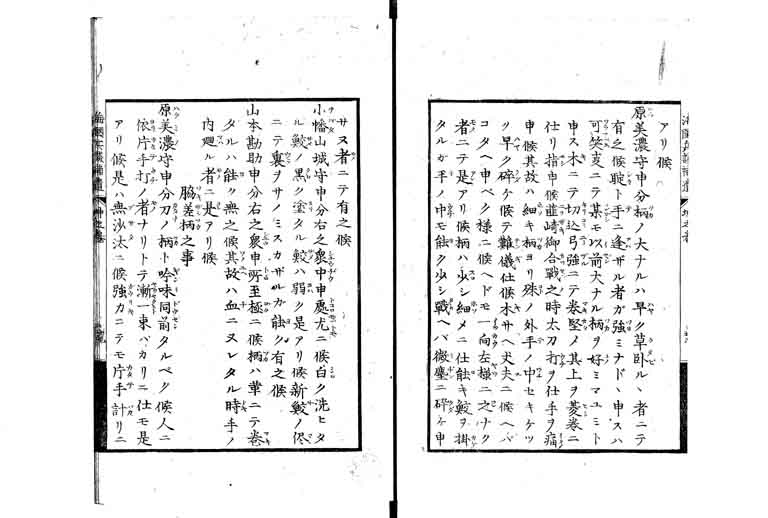 アリ候
原美濃守申分柄ノ大ナルハ早ク草臥ル丶者ニテ
有之候聢ト手ニ逢ザル者ガ強ミナド丶申スハ
可笑支ニテ某モ以前大ナル柄ヲ好ミマユミト
申ス木ニテ切込弓強ニテ巻堅ノ其上ヲ菱巻ニ
仕リ指申候韮崎御合戦之時太刀打ヲ仕手ヲ痛
申候其故ハ細キ柄ヨリ殊ノ外手ノ中セキケツ
リ早ク砕ケ候テ難儀仕候本サヘ丈夫ニ候ヘバ
コタヘ申ベク様ニ候ヘドモ一向左様ニ之ナク
者ニテ是アリ候柄ハ少シ細メニ仕能キ鮫ヲ掛
タルガ手ノ中モ能ク少シ戰ヘバ微塵ニ砕ケ申
サヌ者ニテ有之候
小幡山城守申分右之衆中申處尤ニ候白ク洗ヒタ
ル鮫ノ黒ク塗タル鮫ハ弱ク是アリ候新鮫ノ侭
ニテ裏ヲサノミスカザルガ能ク有之候
山本勘助申分右之衆申所至極ニ候柄ハ革ニテ巻
タルハ能ク無之候其故ハ血ニヌレタル時手ノ
内廻ル者ニ是アリ候
脇差柄之事
原美濃守申分刀ノ柄ト吟味同前タルベク候人ニ
依片手打ノ者ナリトテ漸一束バカリニ仕モ是
アリ候是ハ無沙汰ニ候強カニテモ片手計リニ